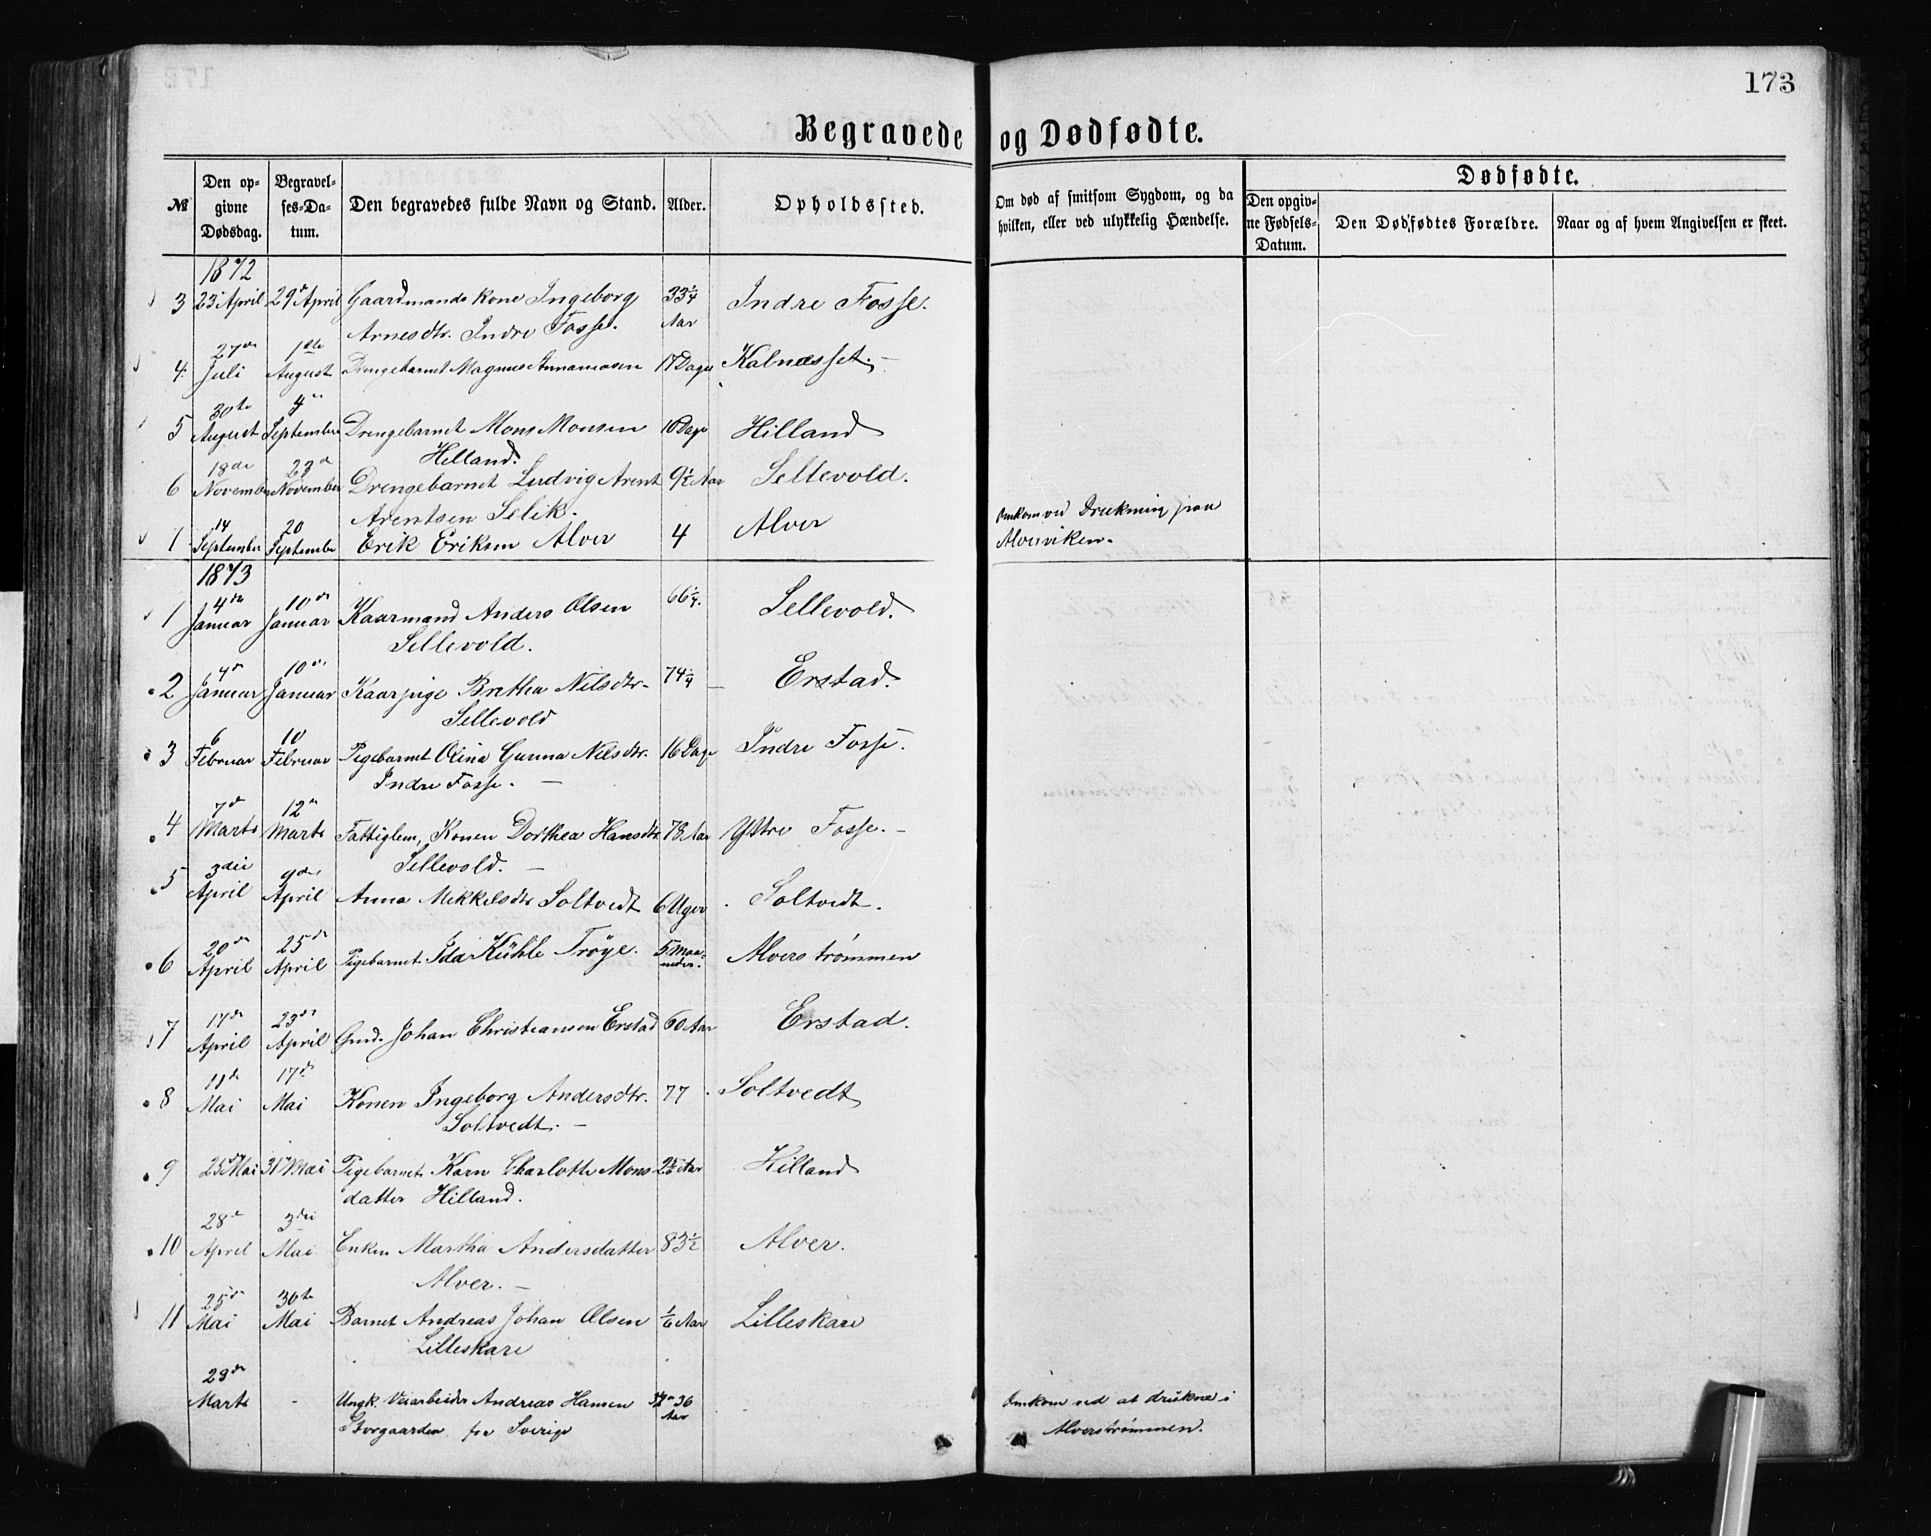 173
Begravede og Dødfødte.
№
Den opgivne Dødsdag.
Begravelses-Datum.
Den begravedes fulde Navn og Stand.
Alder.
Opholdssted.
Om død af smitsom Sygdom, og da hvilken, eller ved ulykkelig Hændelse.
Dødfødte.
Den opgivne Fødsels-Datum.
Den Dødfødtes Forældre.
Naar og af hvem Angivelsen er skeet.
1872
3 23 April 29 April Gaardmands kone Ingeborg 33 1/4 Aar Indre Fosse.
Arnesdtr. Indre Fosse.
4 27de Juli 1ste August Drengebarnet Magnus 17 Dage Kalnæsset.
5 30te August 4 September Drengebarnet Mons Monsen 10 Dage Hilland
Hilland.
6 18de November 23d November Drengebarnet Ludvig Arent 9 1/2 Aar Sellevold.
Arentsen
1 14 September 20 September Erik Eriksen Alver 4 Alver Omkom ved Drukning paa
Alverviken.
1873
1 4de Januar 10de Januar Kaarmand Anders Olsen 66 1/4. Sellevold.
Sellevold.
2 4de Januar 10de Januar Kaarpige Brithe Nilsdtr. 74 1/4 Erstad.
Sellevold
3 6 Februar 10 Februar Pigebarnet Olina Nilsdtr. 16 Dage Indre Fosse.
Indre Fosse. —
4 7de Marts 12te Marts Fattiglem, Konen Dorthea Hansdtr. 78 Aar Ystre Fosse. —
Sellevold. —
5 3die April 9de April Anna Mikkelsdtr Soltvedt 6 Uger Soltvedt.
6 20de April 25de April Pigebarnet Ida Kühle Trøye. 5 Maaneder. Alverstrømmen
7 17de April 23de April Gmd. Johan Christiansen Erstad 60 Aar Erstad.
8 11te Mai 17de Mai Konen Ingeborg Andersdtr. 77 Soltvedt
Soltvedt. —
9 25 Mai 31 Mai Pigebarnet Karn Charlotte Mons Aar Hilland
datter Hilland.
10 28de April 3die Mai Enken Martha Andersdatter 83 1/2 Alver.
Alver. —
11 25de Mai 30te Mai Barnet Andreas Johan Olsen 1/6 Aar Lilleskare
Lilleskare
29de Marts - Ungk. Veiarbeider Andreas Hansen 36 Aar Omkom ved at drukne i
Storgaarden fra Sverige Alverstrømmen.